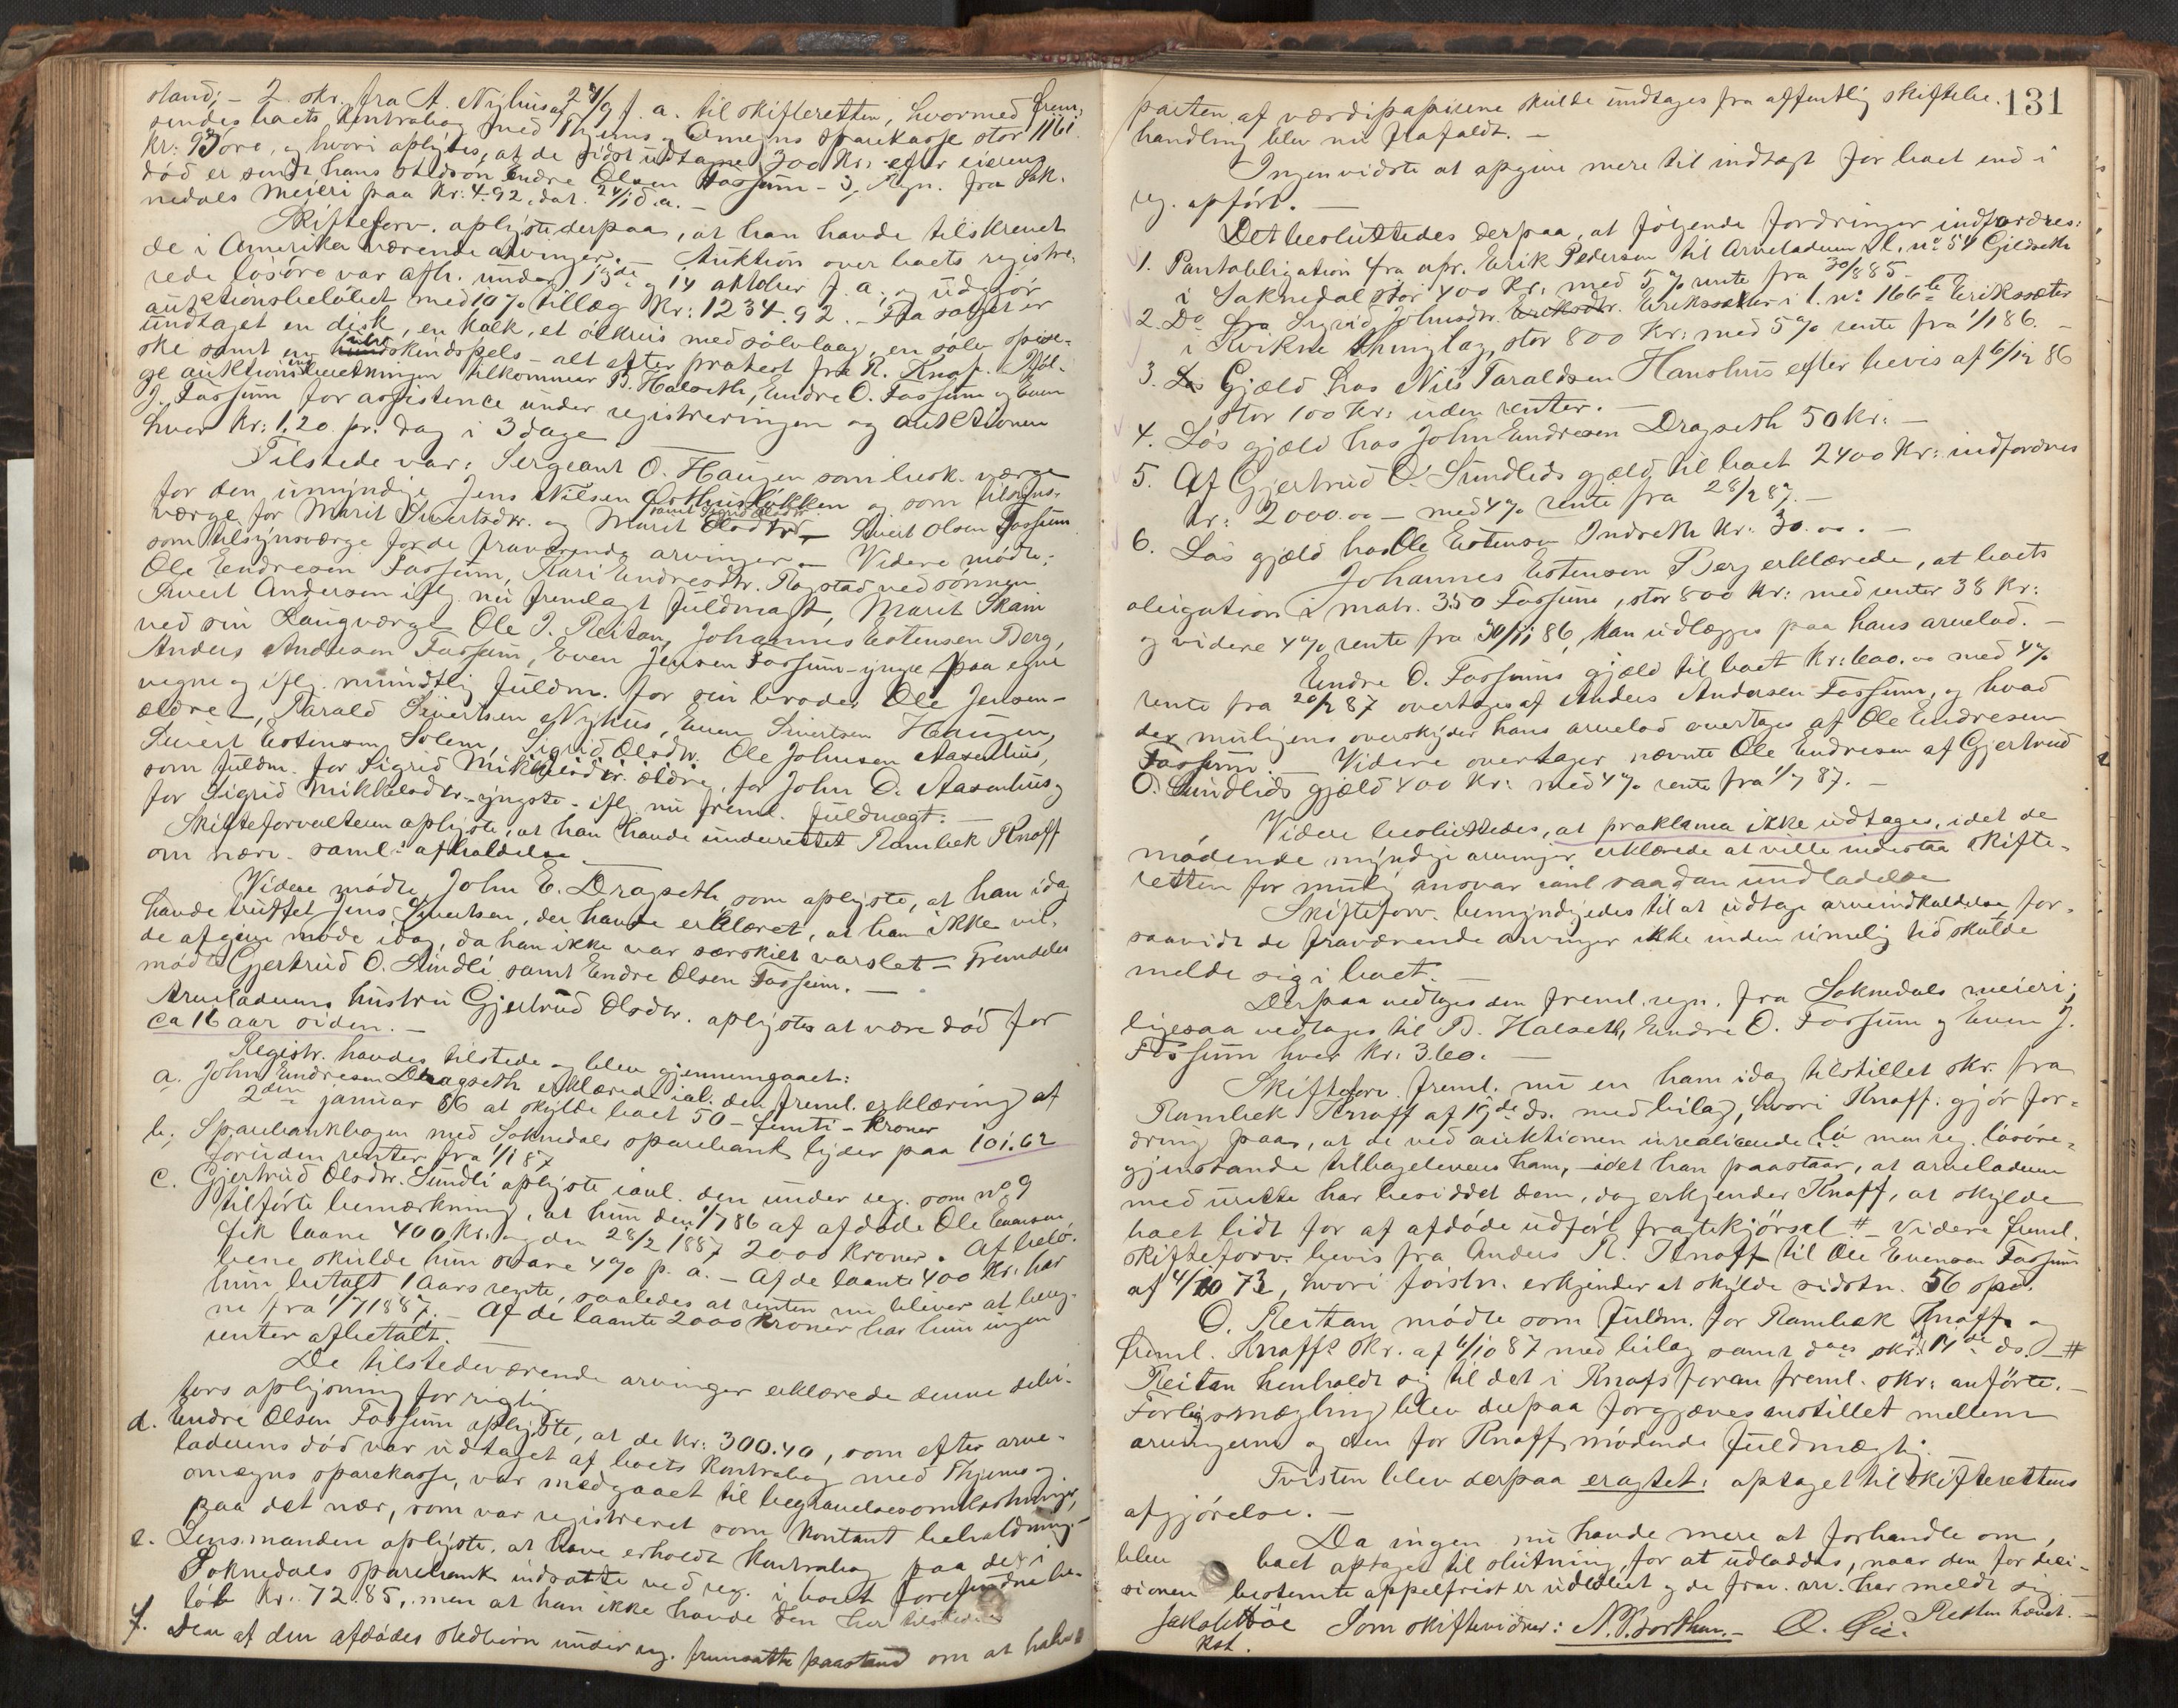 stand; – 2. skr. fra A. Nyhus af 24/9 f. a. til skifteretten, hvormed frem-
sendes boets kontrabog med Thjems og Omegns sparekasse stor 1161
kr: 93 øre, og hvori oplystes, at de sidst udtagne 300 Kr: efter eierens
død er sendt hans stedsøn Endre Olsen Fossum – 3, Regn. fra Sok-
nedals meieri paa Kr. 4.92, dat. 24/10 d. a. –
Skifteforv. oplyste derpaa, at han havde tilskrevet
de i Amerika værende arvinger. – Auktion over boets registre-
rede løsøre var afh. under 13de og 14 oktober f. a. og udgjør
auktionsbeløbet med 10% tillæg Kr: 1234.92. – Fra salget er
undtaget en disk, en kalk, et ølkrus med sølvlaag, en sølv spise-
ske samt en ulveskindspels – alt efter protest fra R. Knoff. Iføl-
ge auktionsberetningen tilkommer B. Halseth, Endre O. Fossum og Even
J. Fossum for assistence under registreringen og auktionen
hver Kr: 1,20 pr. dag i 3 dage
Tilstede var: Sergeant O. Haugen som besk. værge
for den umyndige Jens Nilsen Gothusløkken og som tilsyns-
værge for Marit Sivertsdtr. og Marit Olsdtr samt Sigrid Olsdtr. – Sivert Olsen Fossum
som tilsynsværge for de fraværende arvinger. – Videre mødte:
Ole Endresen Fossum, Kari Endresdtr. Rogstad ved sønnen
Sivert Andersen iflg. nu fremlagt fuldmagt, Marit Skain
ved sin Laugværge Ole J. Reitan, Johannes Estensen Berg,
Anders Andersen Fossum, Even Jensen Fossum – yngre paa egne
vegne og iflg. mundtlig fuldm. for sin broder Ole Jensen –
ældre –, Tarald Sivertsen Nyhus, Even Sivertsen Haugen,
Sivert Estensen Solem, Sigrid Olsdtr. Ole Johnsen Aasenhus,
som fuldm. for Sigrid Mikkelsdtr. ældre, for John O. Aasenhus og
for Sigrid Mikkelsdtr. – yngste – iflg. nu freml. fuldmagt. –
Skifteforvalteren oplyste, at han havde underrettet Rambek Knoff
om nærv. saml: afholdelse
Videre mødte, John E. Dragseth som oplyste, at han idag
havde truffet Jens Sivertsen, der havde erklæret, at han ikke vil-
de afgive møde idag, da han ikke var særskilt varslet – Fremdeles
mødte Gjertrud O. Sundli samt Endre Olsen Fossum. –
Arveladerens hustru Gjertrud Olsdtr. oplystes at være død for
ca 16 aar siden. –
Registr. havdes tilstede og blev gjennemgaaet:
a. John Endresen Dragseth erklærede ial. den freml. erklæring af
2den januar 86 at skylde boet 50 – femti – kroner
b. Sparebankbogen med Soknedals sparebank lyder paa 101.62
foruden renter fra 1/1 87
c. Gjertrud Olsdtr. Sundli oplyste ianl. den under reg. som no 9
tilførte bemærkning, at hun den 1/7 86 af afdøde Ole Evensen
fik laane 400 Kr: og den 28/2 1887 2000 kroner. Af belø-
bene skulde hun svare 4% p. a. – Af de laante 400 Kr: har
hun betalt 1 aars rente, saaledes at renten nu bliver at bereg-
ne fra 1/7 1887. – Af de laante 2000 kroner har hun ingen
renter afbetalt. –
De tilstedeværende arvinger erklærede denne debi-
tors oplysning for rigtig
d. Endre Olsen Fossum oplyste, at de Kr: 300.40, som efter arve-
laderens død var udtaget af boets kontrabog med Thjems og
omegns sparekasse, var medgaaet til begravelsesomkostninger,
paa det nær, som var registreret som kontant beholdning. –
e. Lensmanden oplyste, at have erholdt kontrabog paa det i
Soknedals sparebank indsatte ved reg. i boet forefundne be-
løb Kr. 72.85, men at han ikke havde den her tilstede
f. Den af den afdødes stedbørn under reg. fremsatte paastand om at halv
131
parten af værdipapirene skulde undtages fra offentlig skiftebe-
handling blev nu frafaldt. –
Ingen vidste at opgive mere til indtægt for boet end i
reg. opført. –
Det besluttedes derpaa, at følgende fordringer indfordres:
1. Pantobligation fra afr. Erik Pedersen til Arveladeren i l. no 54 Gildseth
i Soknedal stor 400 Kr: med 5% rente fra 30/8 85 –
2. Do fra Sigrid Johnsdtr. Eriksdtr. Erikssæter i l. no 166 b Erikssæter
i Kvikne thinglag, stor 800 Kr: med 5% rente fra 1/1 86. –
3. Løs Gjæld hos Nils Taraldsen Hanshus efter bevis af 6/12 86
stor 100 Kr: uden renter. –
4. Løs gjæld hos John Endresen Dragseth 50 Kr: –
5. Af Gjertrud O. Sundlids gjæld til boet 2400 Kr: indfordres
Kr: 2000.00 – med 4% rente fra 28/2 87. –
6. Løs gjæld hos Ole Estensen Indseth Kr: 30.00. –
Johannes Estensen Berg erklærede, at boets
obligation i matr. 350 Fossum, stor 800 Kr: med renter 38 Kr:
og videre 4% rente fra 30/11 86, kan udlægges paa hans arvelod. –
Endre O. Fossums gjæld til boet Kr: 600.00 med 4%
rente fra 20/2 87 overtages af Anders Andersen Fossum, og hvad
der muligens overskyder hans arvelod overtages af Ole Endresen
Fossum. – Videre overtager nævnte Ole Endresen af Gjertrud
O. Sundlids gjæld 400 Kr: med 4% rente fra 1/7 87. –
Videre besluttedes, at proklama ikke udtages, idet de
mødende myndige arvinger erklærede at ville indestaa skifte-
retten for mulig ansvar ianl saadan undladelse
Skifteforv. bemyndigedes til at udtage arveindkaldelse for-
saavidt de fraværende arvinger ikke inden rimelig tid skulde
melde sig i boet. –
Derpaa vedtoges den freml. regn. fra Soknedals meieri;
ligesaa vedtages til B. Halseth, Endre O. Fossum og Even J.
Fossum hver Kr: 3.60. –
Skifteforv. freml. nu en ham idag tilstillet skr. fra
Rambek Knoff af 19de ds. med bilag, hvori Knoff gjør for-
dring paa, at de ved auktionen urealiserede løsøre-
gjenstande tilbageleveres ham, – idet han paastaar, at arveladeren
med urette har besiddet dem, dog erkjender Knoff, at skylde
boet lidt for af afdøde udført fragtekjørsel # – Videre freml.
skifteforv. bevis fra Anders R. Knoff til Ole Evensen Fossum
af 4/10 73, hvori førstn. erkjender at skylde sidstn. 56 spd.
O. Reitan mødte som fuldm. for Rambek Knoff og
freml. Knoffs skr. af 6/10 87 med bilag samt dos skr. 14de ds. – #
Reitan henholdt sig til det i Knoffs foran freml. skr: anførte. –
Forligsmægling blev derpaa forgjæves anstillet mellem
arvingerne og den for Knoff mødende fuldmægtig. –
Tvisten blev derpaa eragtet: optaget til skifterettens
afgjørelse. –
Da ingen nu havde mere at forhandle om,
blev boet optaget til slutning, for at udloddes, naar den for deci-
sionen bestemte appelfrist er udløbet og de frav. arv. har meldt sig.
Retten hævet. –
Jakob Høe Som skiftevidner: N. P. Borthen. – O. Gie.
kst.